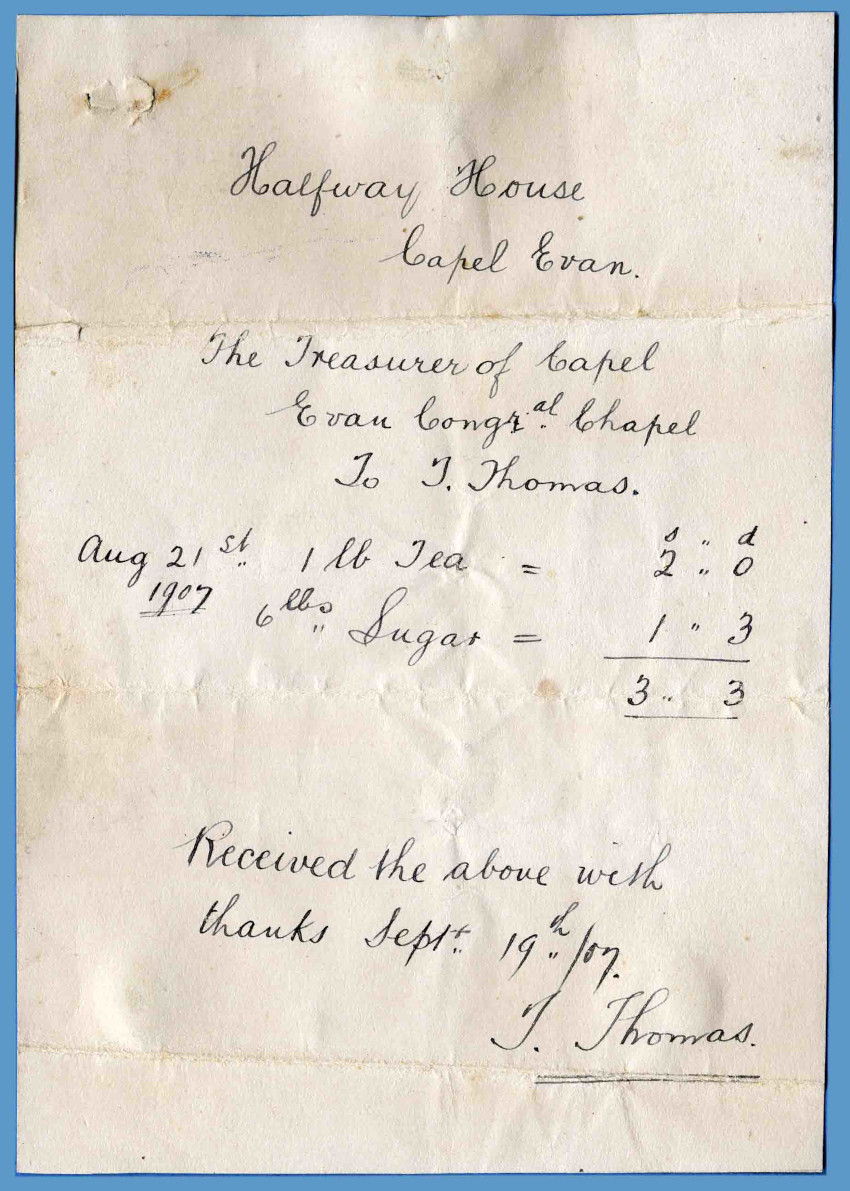 Halfway House
Capel Evan.
The Treasurer of Capel
Evan Congr.al Chapel
To T. Thomas.
s " d
Aug 21st " 1 lb Tea = 2 " 0
1907
6 lbs " Sugar = 1 " 3
3 " 3
Received the above with
thanks Sept. 19th/07.
T. Thomas.